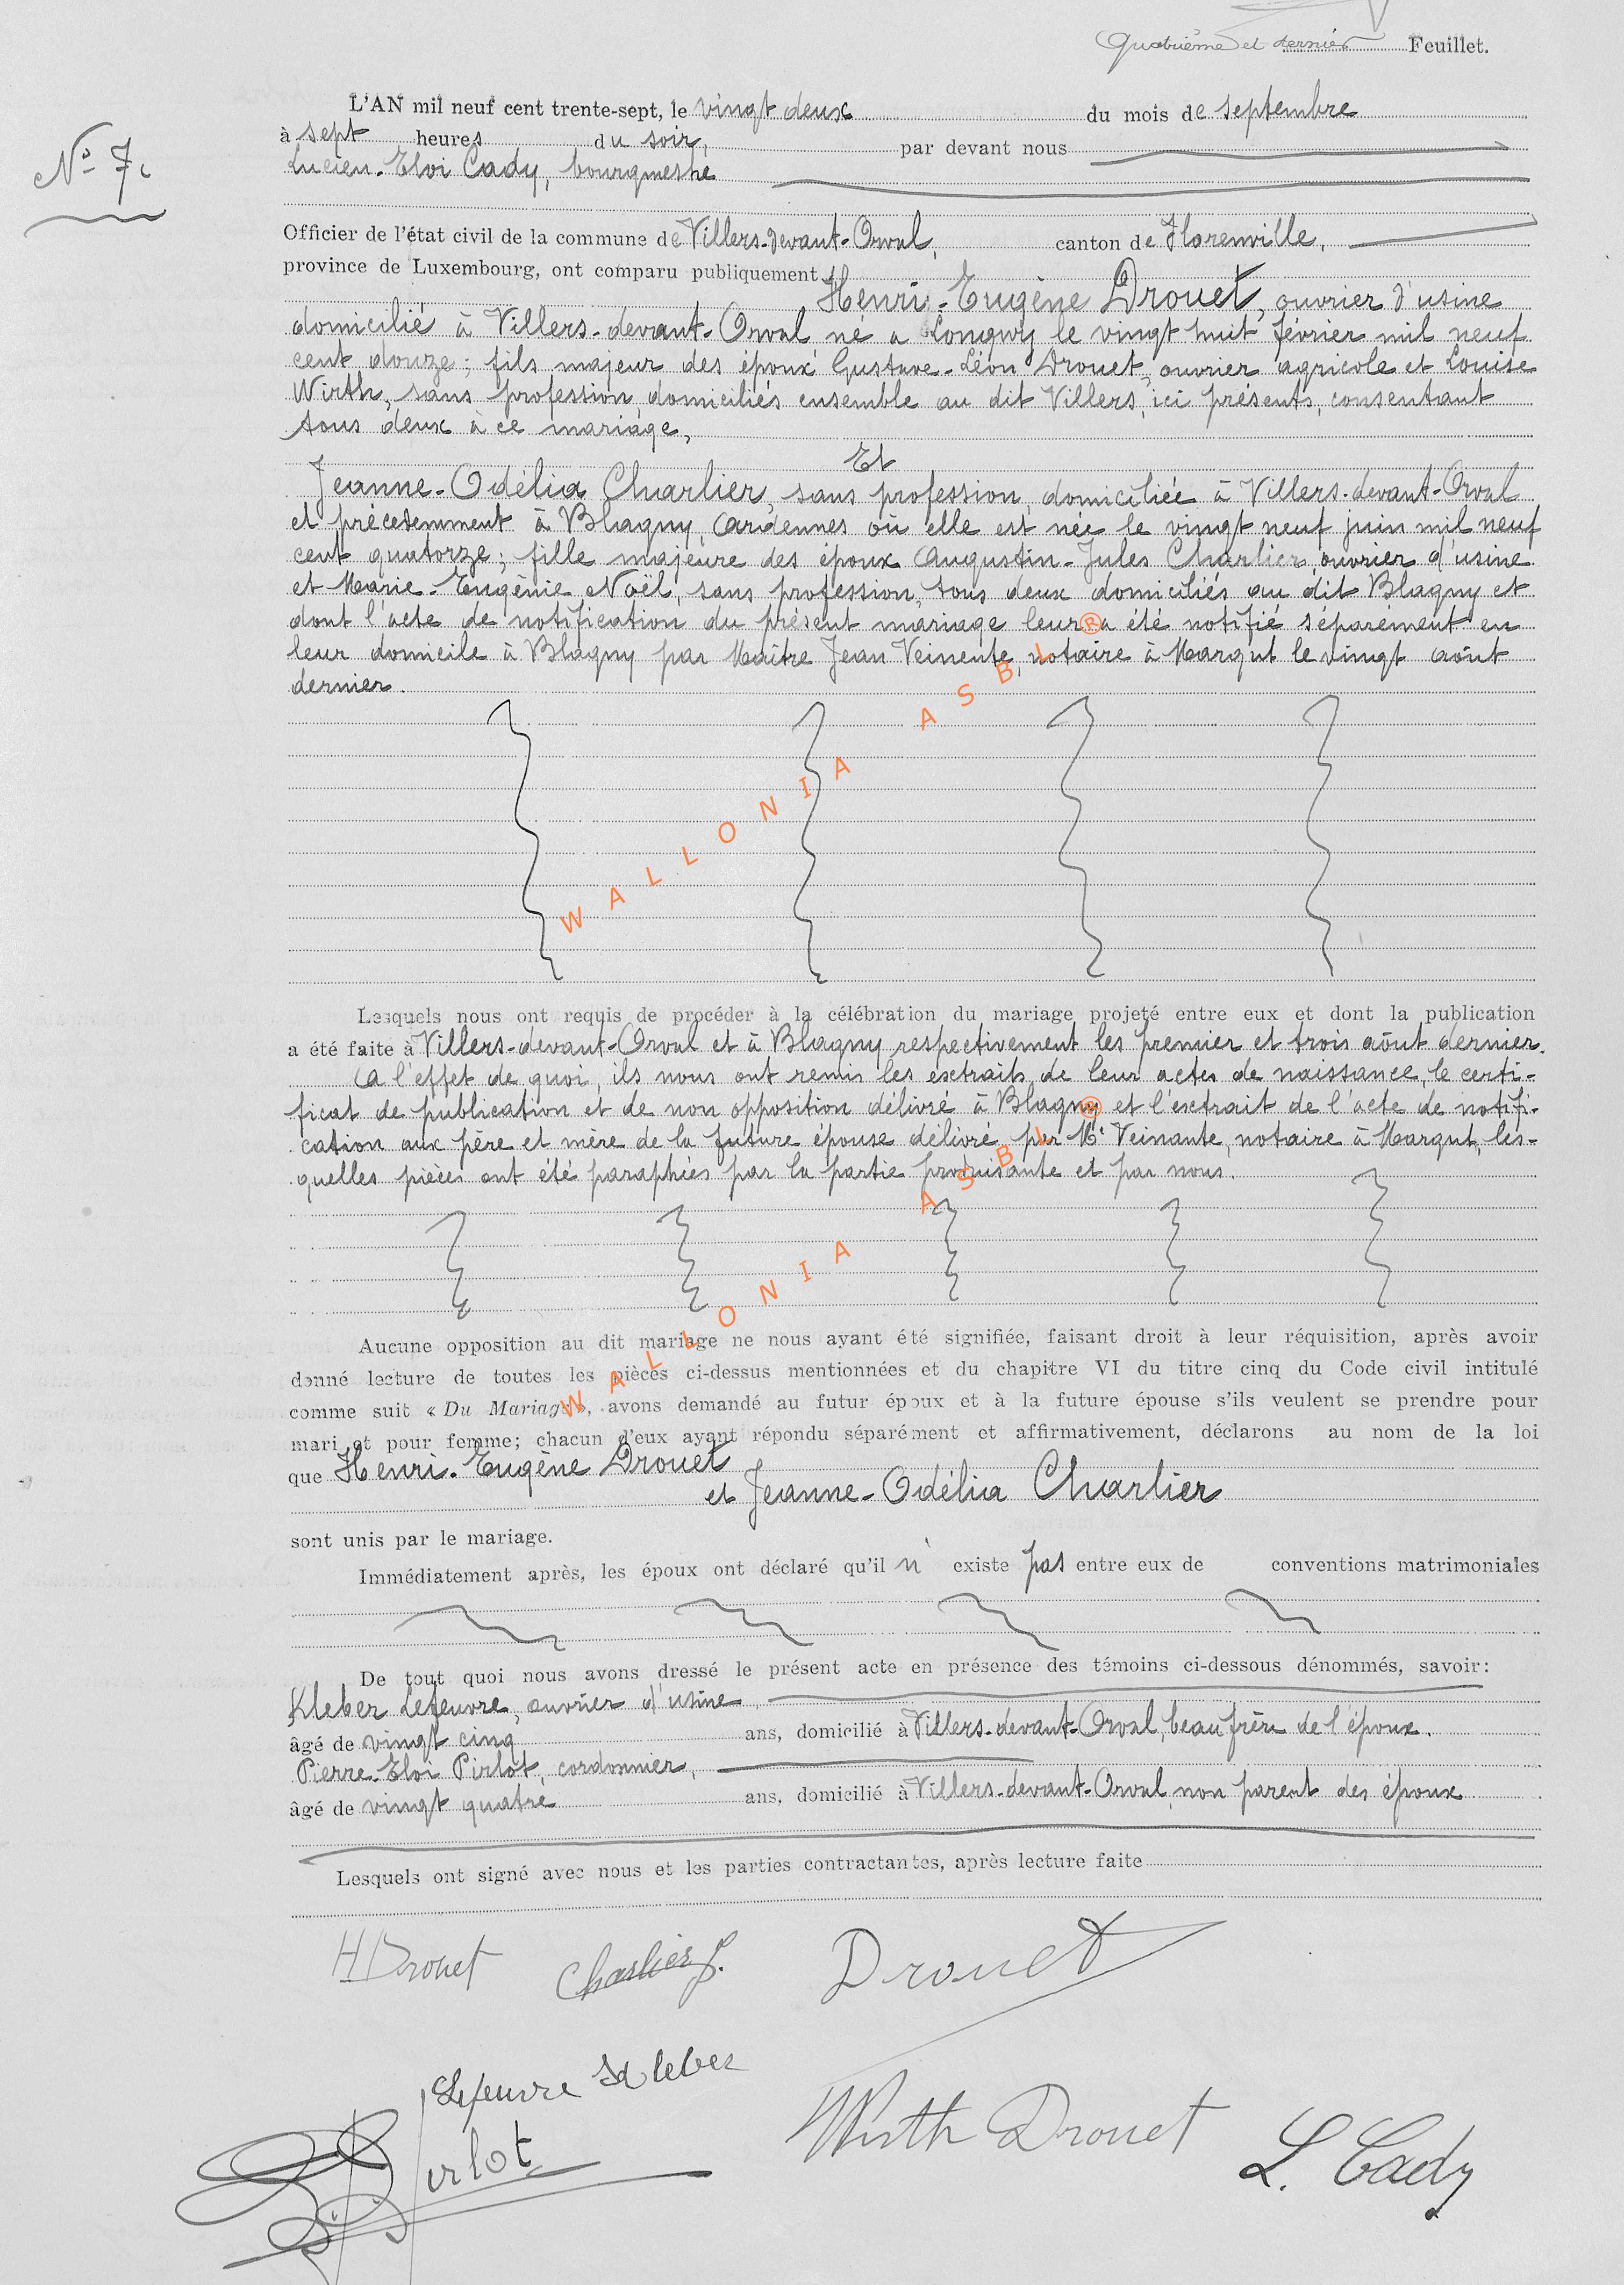 Quatrième et dernier Feuillet.
N° 7.
L'AN mil neuf cent trente-sept, le vingt deux du mois de septembre
à sept heures du soir, par devant nous
Lucien-Eloi Cady, bourgmestre
Officier de l'état civil de la commune de Villers-devant-Orval, canton de Florenville,
province de Luxembourg, ont comparu publiquement
Henri-Eugène Drouet, ouvrier d'usine
domicilié à Villers-devant-Orval né à Longwy le vingt huit février mil neuf
cent douze; fils majeur des époux Gustave-Léon Drouet, ouvrier agricole et Louise
Wirth, sans profession, domiciliés ensemble au dit Villers, ici présents, consentant
tous deux à ce mariage,
Et
Jeanne-Odélia Charlier, sans profession, domiciliée à Villers-devant-Orval
et précedemment à Blagny, Ardennes où elle est née le vingt neuf juin mil neuf
cent quatorze; fille majeure des époux Augustin-Jules Charlier, ouvrier d'usine
et Marie-Eugénie Noël, sans profession, tous deux domiciliés au dit Blagny et
dont l'acte de notification du présent mariage leur a été notifié séparément en
leur domicile à Blagny par Maître Jean Veinente, notaire à Margut le vingt août
dernier.
WALLONIA ASBL ®
Lesquels nous ont requis de procéder à la célébration du mariage projeté entre eux et dont la publication
a été faite à Villers-devant-Orval et à Blagny respectivement les premier et trois août dernier.
A l'effet de quoi, ils nous ont remis les extraits de leur actes de naissance, le certi-
ficat de publication et de non opposition délivré à Blagny et l'extrait de l'acte de notifi-
cation aux père et mère de la future épouse délivré par Me Veinante, notaire à Margut, les-
quelles pièces ont été paraphées par la partie produisante et par nous.
WALLONIA ASBL ®
Aucune opposition au dit mariage ne nous ayant été signifiée, faisant droit à leur réquisition, après avoir
donné lecture de toutes les pièces ci-dessus mentionnées et du chapitre VI du titre cinq du Code civil intitulé
comme suit « Du Mariage », avons demandé au futur époux et à la future épouse s'ils veulent se prendre pour
mari et pour femme; chacun d'eux ayant répondu séparément et affirmativement, déclarons au nom de la loi
que Henri-Eugène Drouet
et Jeanne-Odélia Charlier
sont unis par le mariage.
Immédiatement après, les époux ont déclaré qu'il n' existe pas entre eux de conventions matrimoniales
De tout quoi nous avons dressé le présent acte en présence des témoins ci-dessous dénommés, savoir:
Kleber Lefeuvre, ouvrier d'usine
âgé de vingt cinq ans, domicilié à Villers-devant-Orval, beau frère de l'époux.
Pierre-Eloi Pirlot, cordonnier,
âgé de vingt quatre ans, domicilié à Villers-devant-Orval, non parent des époux
Lesquels ont signé avec nous et les parties contractantes, après lecture faite
H Drouet Charlier J. Drouet
Lefeuvre Kleber
Pirlot Wirth Drouet L. Cady